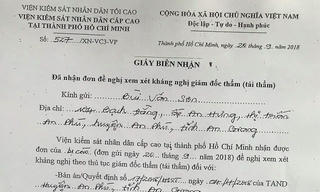 VIỆN KIỂM SÁT NHÂN DÂN TỐI CAO
VIỆN KIỂM SÁT NHÂN DÂN CẤP CAO
TẠI THÀNH PHỐ HỒ CHÍ MINH
Số: 527 /XN-VC3-VP
CỘNG HÒA XÃ HỘI CHỦ NGHĨA VIỆT NAM
Độc lập - Tự do - Hạnh phúc
Thành phố Hồ Chí Minh, ngày 26 tháng 9 năm 2018
GIẤY BIÊN NHẬN
Đã nhận đơn đề nghị xem xét kháng nghị giám đốc thẩm (tái thẩm)
Kính gửi: Bùi Văn Sơn
Địa chỉ: Bạch Đằng, An Hưng, thị trấn
An Phú, huyện An Phú, tỉnh An Giang
Viện kiểm sát nhân dân cấp cao tại thành phố Hồ Chí Minh nhận được
đơn của bị cáo (đơn gửi ngày 26 9 năm 2018) đề nghị xem xét
kháng nghị theo thủ tục giám đốc thẩm (tái thẩm) đối với:
- Bản án/Quyết định số của TAND
huyện An Phú, tỉnh An Giang